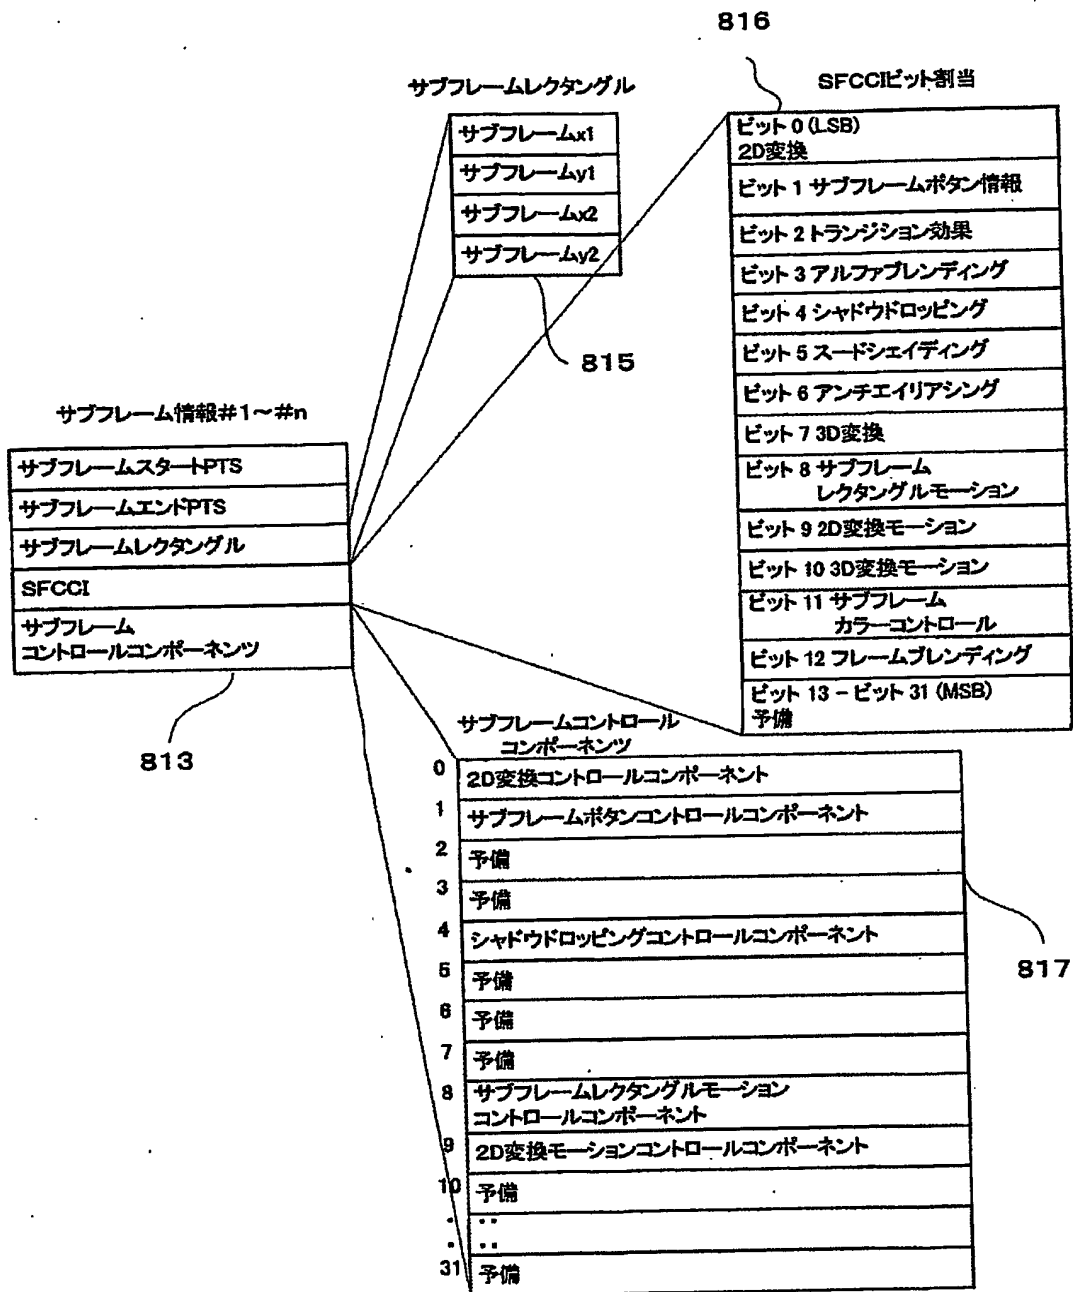 816
サブフレームレクタングル
SFCCIビット割当
サブフレームx1
サブフレームy1
サブフレームx2
サブフレームy2
815
ビット 0 (LSB)
2D変換
ビット 1 サブフレームボタン情報
ビット 2 トランジション効果
ビット 3 アルファブレンディング
ビット 4 シャドウドロッピング
ビット 5 スードシェイディング
ビット 6 アンチエイリアシング
ビット 7 3D変換
ビット 8 サブフレーム
レクタングルモーション
ビット 9 2D変換モーション
ビット 10 3D変換モーション
ビット 11 サブフレーム
カラーコントロール
ビット 12 フレームブレンディング
ビット 13 – ビット 31 (MSB)
予備
サブフレーム情報#1～#n
サブフレームスタートPTS
サブフレームエンドPTS
サブフレームレクタングル
SFCCI
サブフレーム
コントロールコンポーネンツ
813
サブフレームコントロール
コンポーネンツ
0 2D変換コントロールコンポーネント
1 サブフレームボタンコントロールコンポーネント
2 予備
3 予備
4 シャドウドロッピングコントロールコンポーネント
5 予備
6 予備
7 予備
8 サブフレームレクタングルモーション
コントロールコンポーネント
9 2D変換モーションコントロールコンポーネント
10 予備
・ ・・
・ ・・
31 予備
817